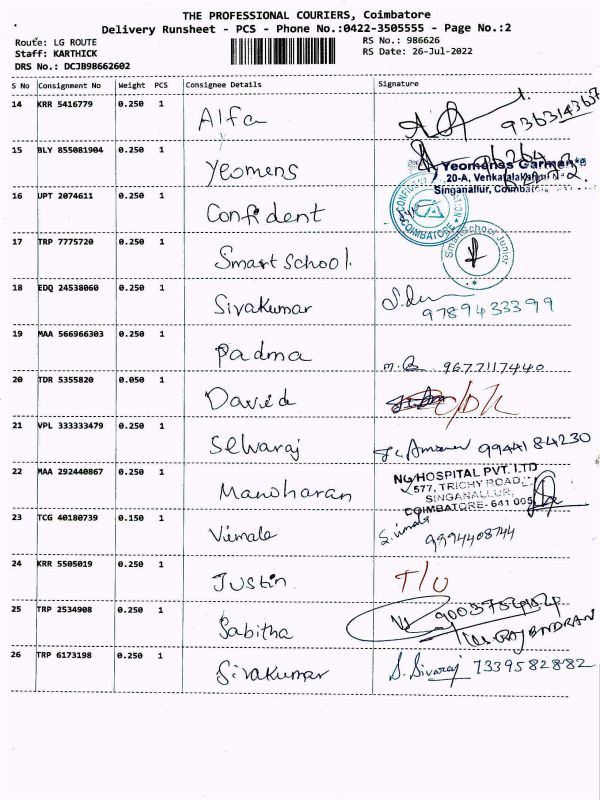 THE PROFESSIONAL COURIERS, Coimbatore
Delivery Runsheet - PCS - Phone No.:0422-3505555 - Page No.:2
Route: LG ROUTE
Staff: KARTHICK
DRS No.: DCJB98662602
RS No.: 986626
RS Date: 26-Jul-2022
S No Consignment No Weight PCS Consignee Details Signature
14 KRR 5416779 0.250 1 Alfa 9363143667
15 BLY 855081904 0.250 1 Yeomens
Yeomenas Garments
20-A, Venkatalakshmi N
Singanallur, Coimbatore
16 UPT 2074611 0.250 1 Confident
COIMBATORE
17 TRP 7775720 0.250 1 Smart School
Smart School Junior
18 EDQ 24538060 0.250 1 Sivakumar
9789433399
19 MAA 566966303 0.250 1 Padma 9677117440
20 TDR 5355820 0.050 1 David C/D/L
21 VPL 333333479 0.250 1 Selwaraj 9944184230
22 MAA 292440867 0.250 1 Manoharan
NG HOSPITAL PVT. LTD
577, TRICHY ROAD,
SINGANALLUR,
COIMBATORE- 641 005
23 TCG 40180739 0.150 1 Vimala S. vimala
9994408744
24 KRR 5505019 0.250 1 Justin T/U
25 TRP 2534908 0.250 1 Sabitha
26 TRP 6173198 0.250 1 Sivakumar S. Sivaraj 7339582882